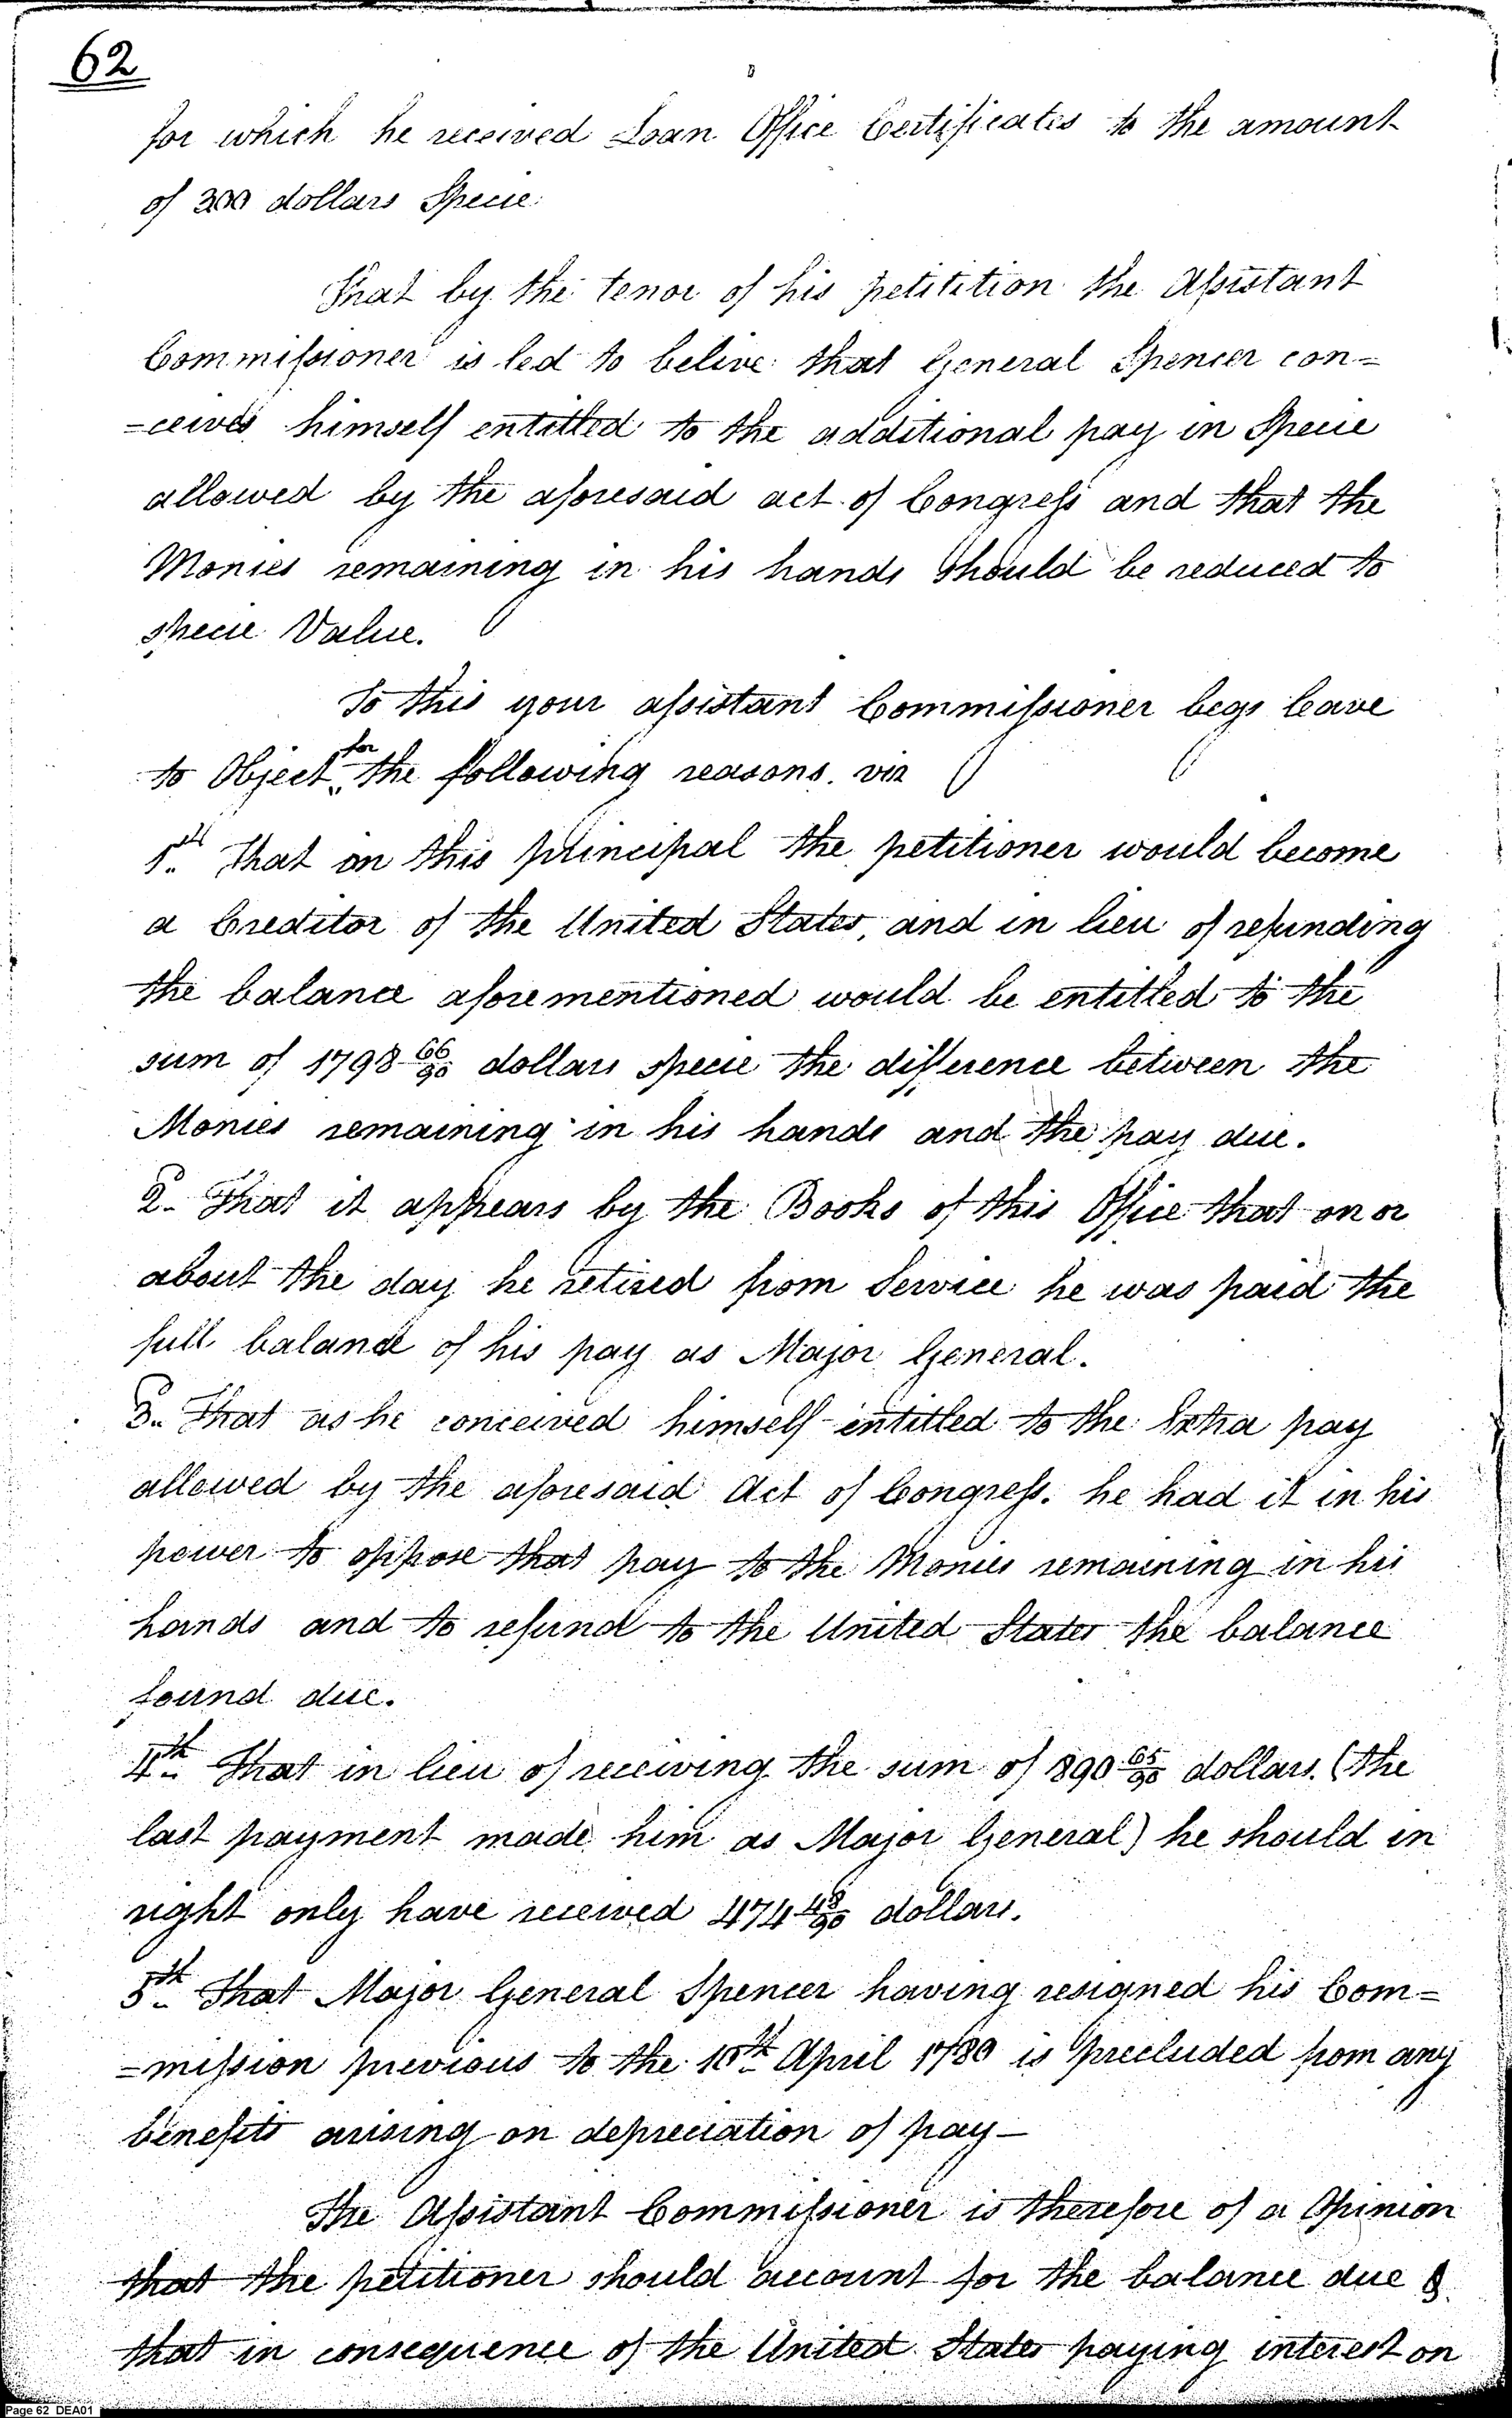 62
for which he received Loan Office Certificates to the amount
of 300 dollars Specie.
That by the tenor of his petitition the Assistant
Commissioner is led to belive that General Spencer con=
=ceives himself entitled to the additional pay in Specie
allowed by the aforesaid act of Congress and that the
Monies remaining in his hands should be reduced to
specie Value.
To this your assistant Commissioner begs leave
to Object for the following reasons. viz
1st That on this principal the petitioner would become
a Creditor of the United States, and in lieu of refunding
the balance aforementioned would be entitled to the
sum of 1798 66/90 dollars specie the difference between the
Monies remaining in his hands and the pay due.
2. That it appears by the Books of this Office that on or
about the day he retired from Service he was paid the
full balance of his pay as Major General.
3. That as he conceived himself entitled to the Extra pay
allowed by the aforesaid Act of Congress. he had it in his
power to oppose that pay to the Monies remaining in his
hands and to refund to the United States the balance
found due.
4th That in lieu of receiving the sum of 890 65/90 dollars. (the
last payment made him as Major General) he should in
right only have received 474 48/90 dollars.
5th That Major General Spencer having resigned his Com=
=mission previous to the 10th April 1780 is precluded from any
benefits arising on depreciation of pay —
The Assistant Commissioner is therefore of a Opinion
that the petitioner should account for the balance due &
that in consequence of the United States paying interest on
Page 62 DEA01